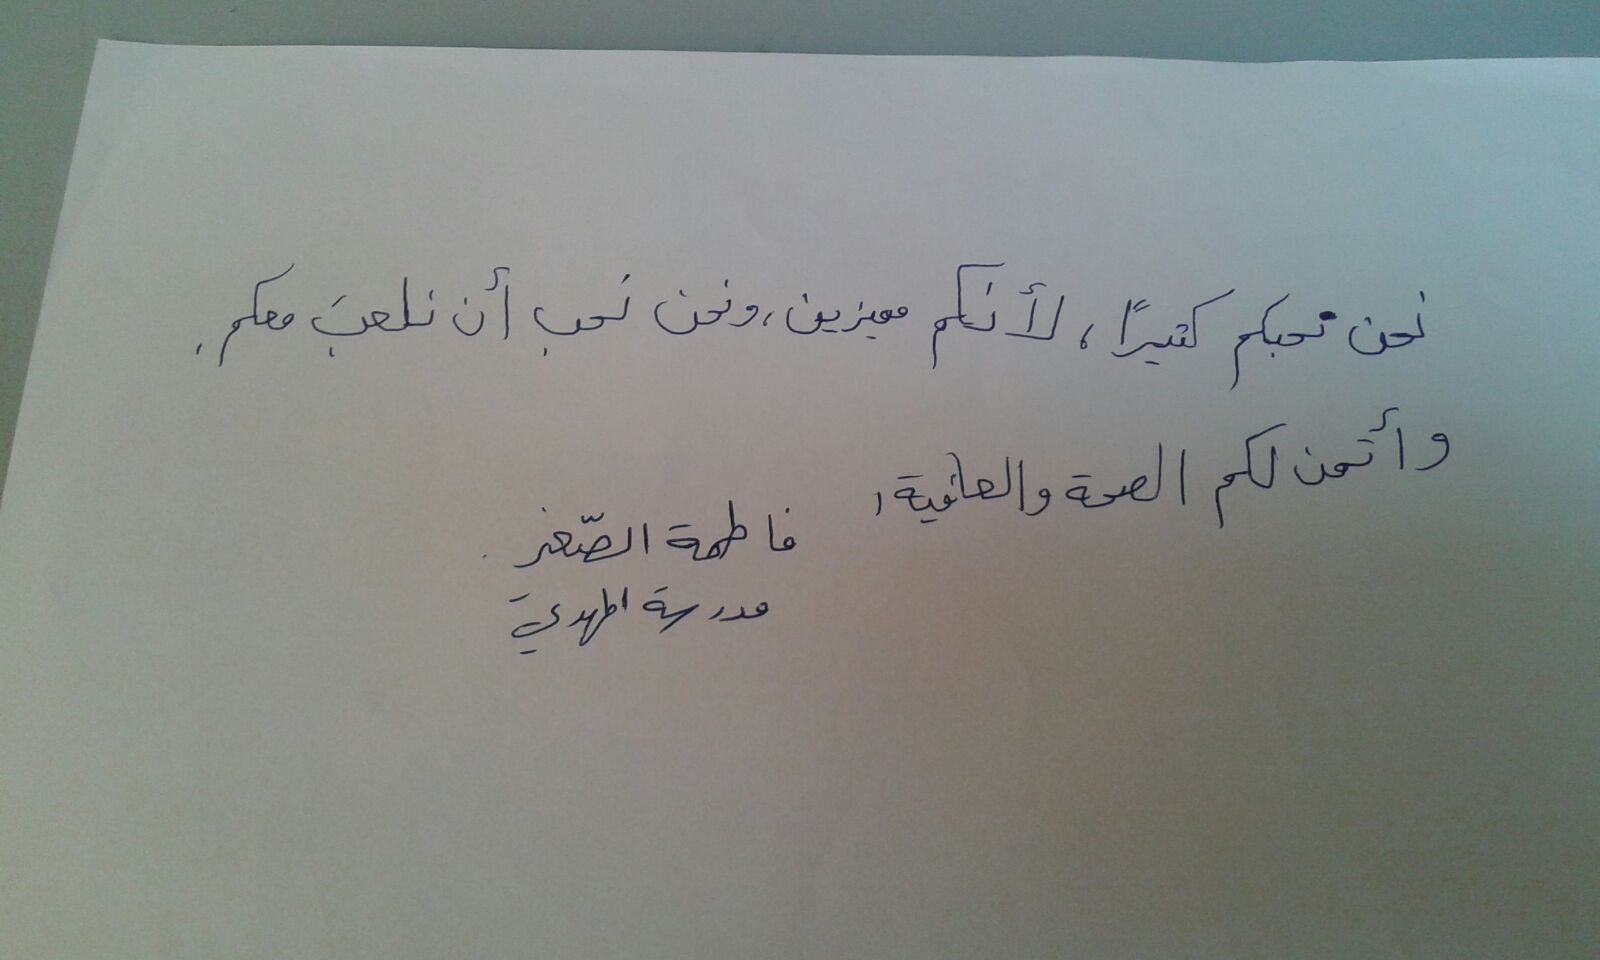 نحن نحبكم كثيرًا، لأنكم مميزين، ونحن نحب أن نلعبَ معكم.
وأتمن لكم الصحة والعافية،
فاطمة الصّغير
مدرسة المهدي